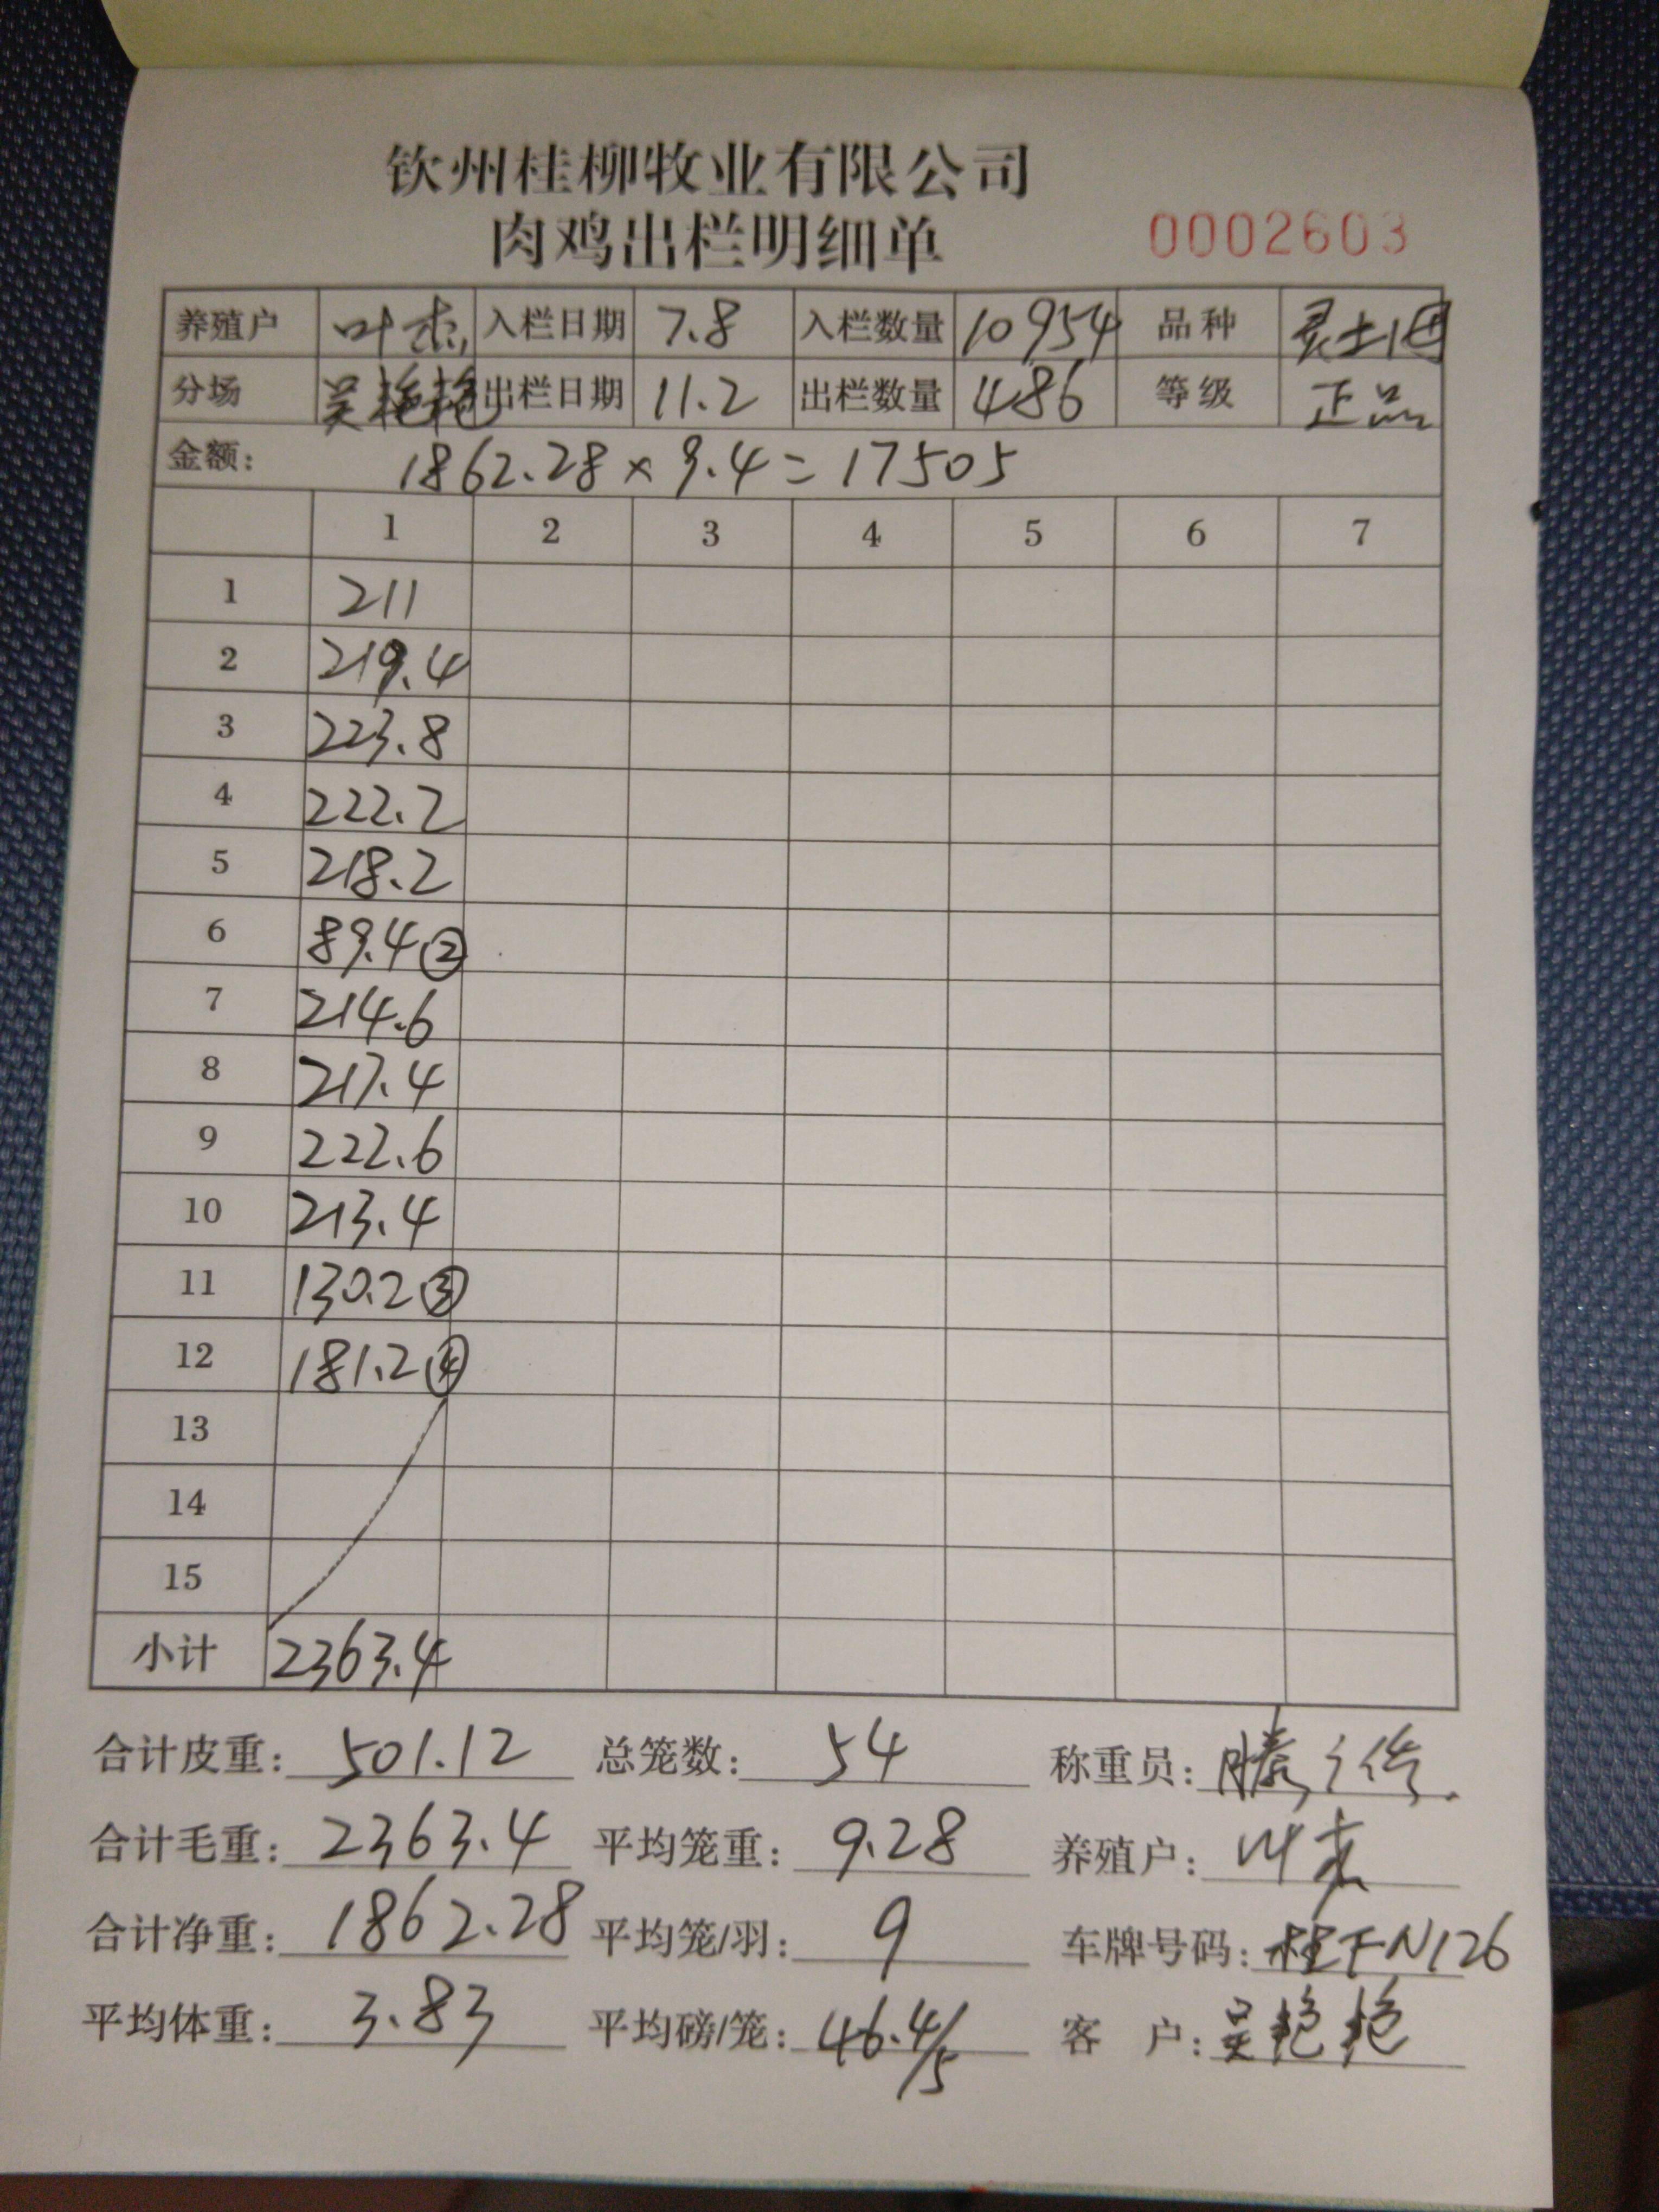 钦州桂柳牧业有限公司
肉鸡出栏明细单 0002603
养殖户 叶杰 入栏日期 7.8 入栏数量 10954 品种
分场 吴艳艳 出栏日期 11.2 出栏数量 486 等级 正品
金额: 1862.28×9.4=17505
1 2 3 4 5 6 7
1 211
2 219.4
3 223.8
4 222.2
5 218.2
6 89.4②
7 214.6
8 217.4
9 222.6
10 213.4
11 130.2③
12 181.2④
13
14
15
小计 2363.4
合计皮重: 501.12 总笼数: 54 称重员:
合计毛重: 2363.4 平均笼重: 9.28 养殖户: 叶杰
合计净重: 1862.28 平均笼/羽: 9 车牌号码: 桂FN126
平均体重: 3.83 平均磅/笼: 46.4/5 客 户: 吴艳艳